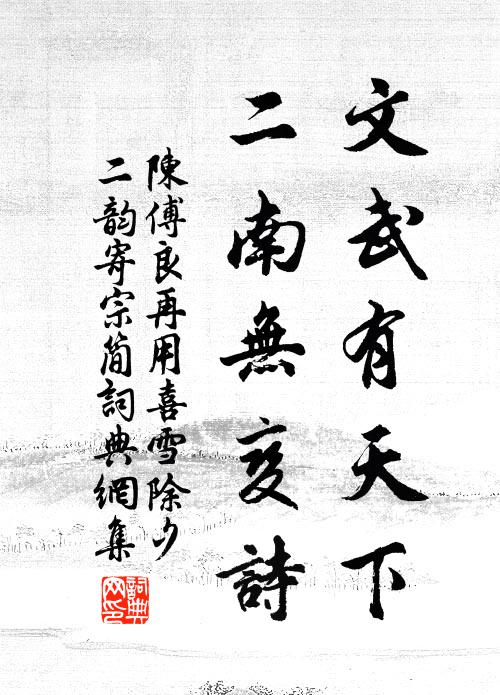 文武有天下
二南無变詩
陳傅良再用喜雪除夕
二韵寄宗简詞典網集
詞典网印